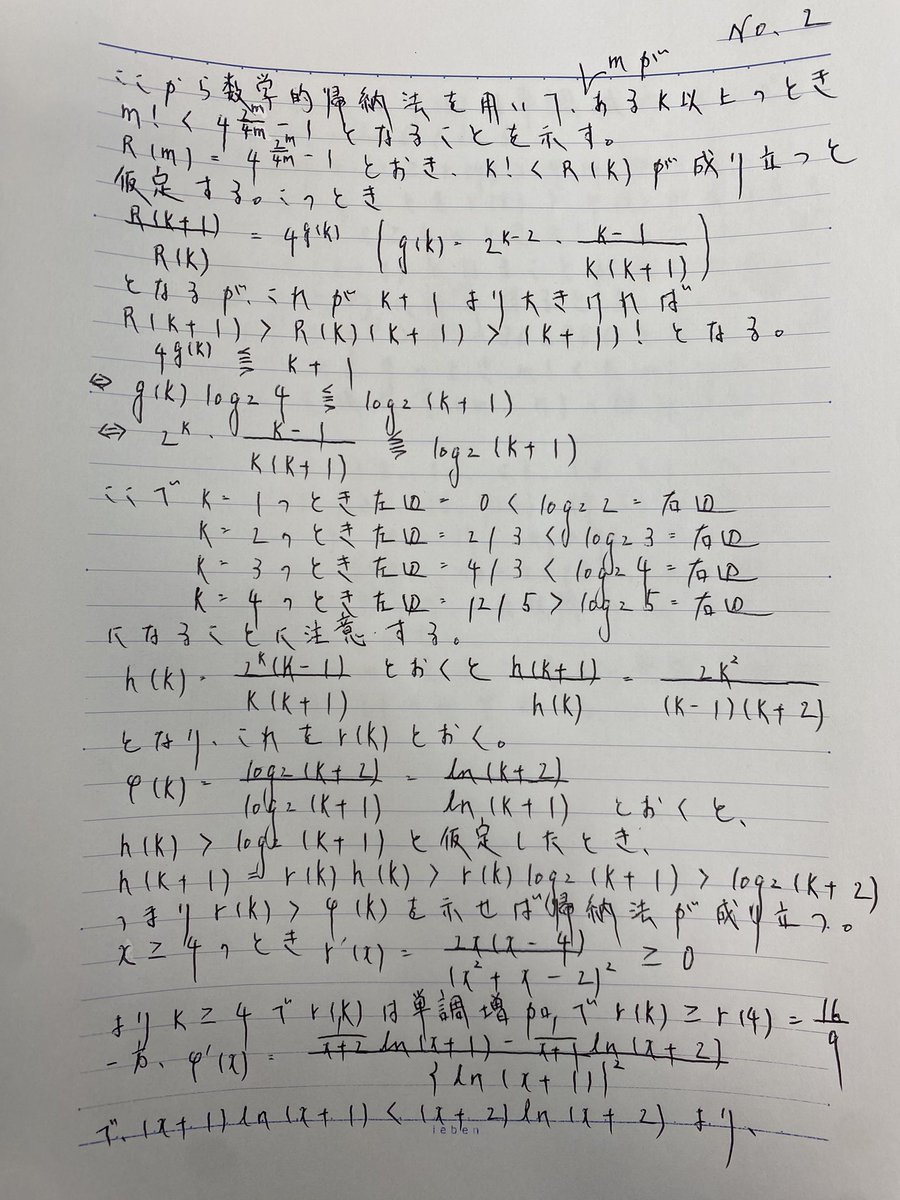 No. 2
mが
ここから数学的帰納法を用いて、あるK以上のとき
m! < 4^{2^m/4m} - 1 となることを示す。
R(m) = 4^{2^m/4m} - 1 とおき、K! < R(K) が成り立つと
仮定する。このとき
R(K+1)/R(K) = 4^{g(K)} (g(K) = 2^{K-2} · (K-1)/(K(K+1)))
となるが、これが K+1 より大きければ
R(K+1) > R(K)(K+1) > (K+1)! となる。
4^{g(K)} ⋛ K+1
⇔ g(K) log₂4 ⋛ log₂(K+1)
⇔ 2^K · (K-1)/(K(K+1)) ⋛ log₂(K+1)
ここで K=1のとき左辺 = 0 < log₂2 = 右辺
K=2のとき左辺 = 2/3 < log₂3 = 右辺
K=3のとき左辺 = 4/3 < log₂4 = 右辺
K=4のとき左辺 = 12/5 > log₂5 = 右辺
になることに注意する。
h(K) = 2^K(K-1)/(K(K+1)) とおくと h(K+1)/h(K) = 2K²/((K-1)(K+2))
となり、これを r(K) とおく。
φ(K) = log₂(K+2)/log₂(K+1) = ln(K+2)/ln(K+1) とおくと、
h(K) > log₂(K+1) と仮定したとき、
h(K+1) = r(K)h(K) > r(K)log₂(K+1) > log₂(K+2)
つまり r(K) > φ(K) を示せば帰納法が成り立つ。
x ≥ 4のとき r'(x) = 2x(x-4)/(x²+x-2)² ≥ 0
より K ≥ 4 で r(K) は単調増加, で r(K) ≥ r(4) = 16/9
一方、φ'(x) = (1/(x+2) ln(x+1) - 1/(x+1) ln(x+2))/{ln(x+1)}²
で、(x+1)ln(x+1) < (x+2)ln(x+2) より、
leben